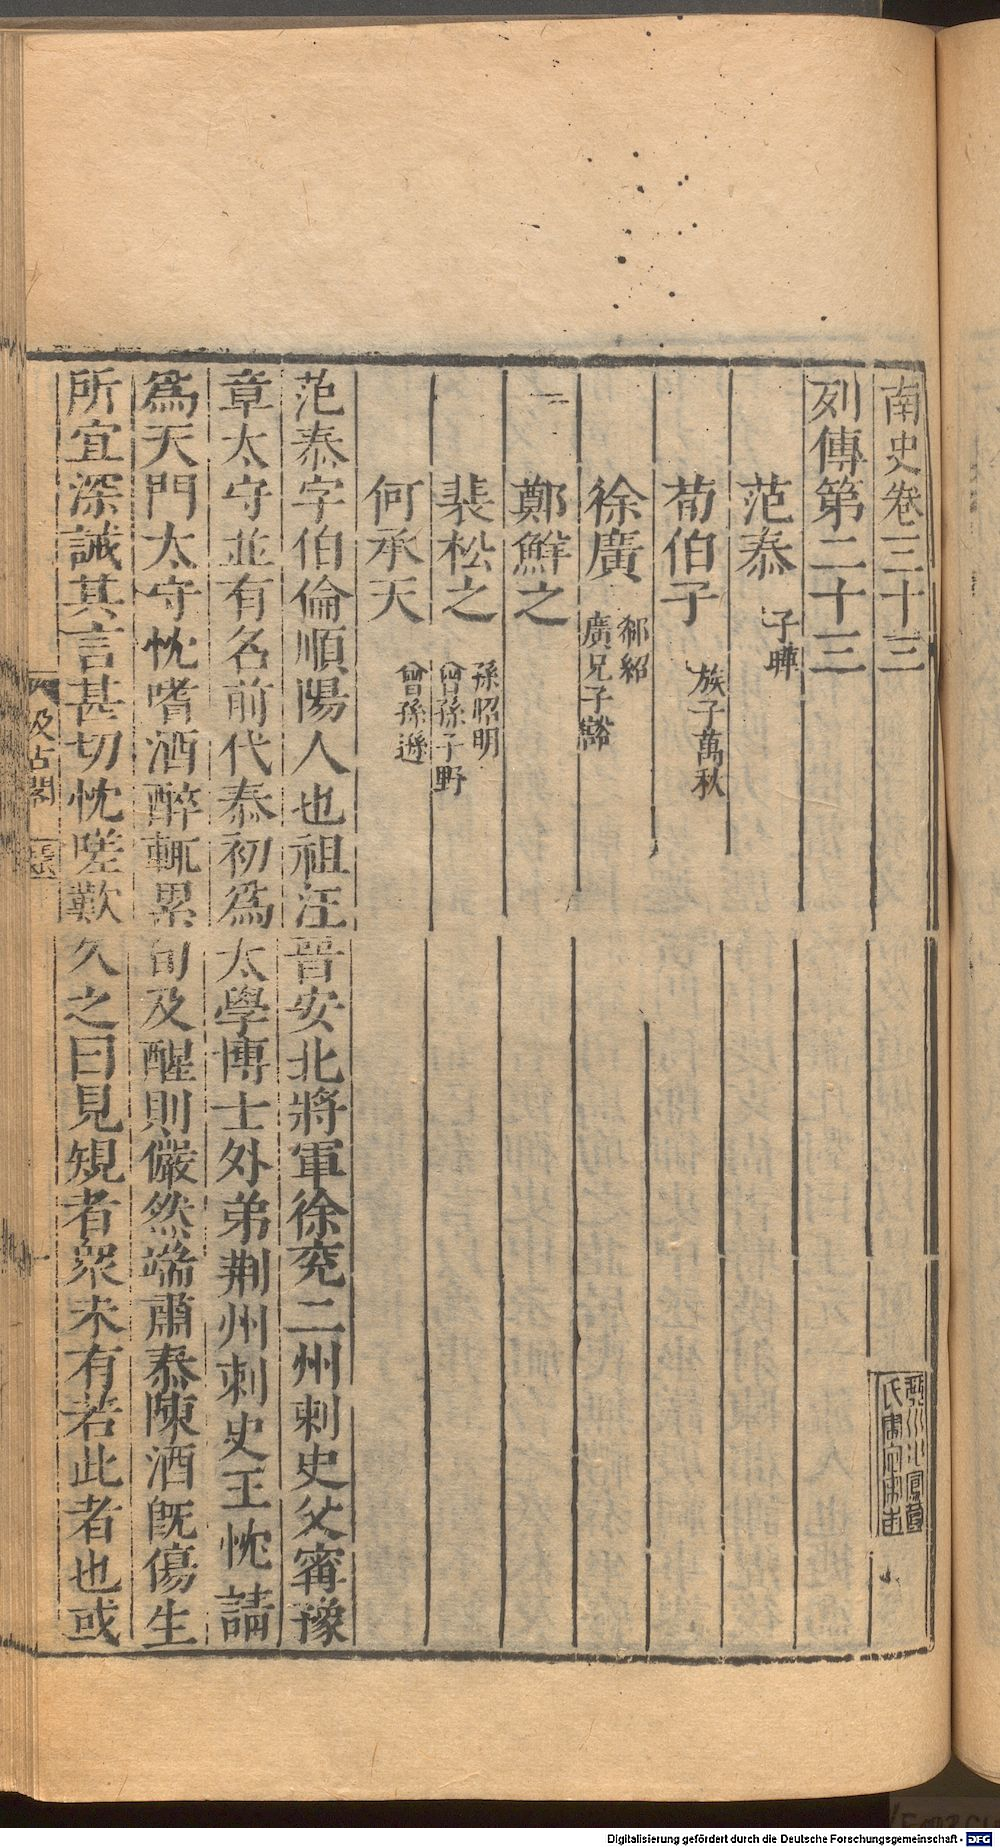 南史卷三十三
列傳第二十三
范泰 子曄
荀伯子 族子萬秋
徐廣 郗紹 廣兄子豁
鄭鮮之
裴松之 孫昭明 曾孫子野
何承天 曾孫遜
范泰字伯倫順陽人也祖汪晉安北將軍徐兗二州刺史父甯豫
章太守並有名前代泰初為太學博士外弟荆州刺史王忱請
爲天門太守忱嗜酒醉輒累旬及醒則儼然端肅泰陳酒既傷生
所宜深誡其言甚切忱嗟歎久之曰見規者衆未有若此者也或
汲古閣
一
Digitalisierung gefördert durch die Deutsche Forschungsgemeinschaft - DFG